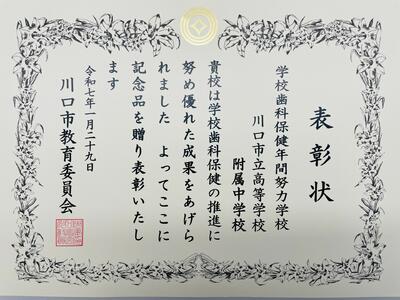 表彰状
学校歯科保健年間努力学校
川口市立高等学校
附属中学校
貴校は学校歯科保健の推進に
努め優れた成果をあげら
れました よってここに
記念品を贈り表彰いたし
ます
令和七年一月二十九日
川口市教育委員会